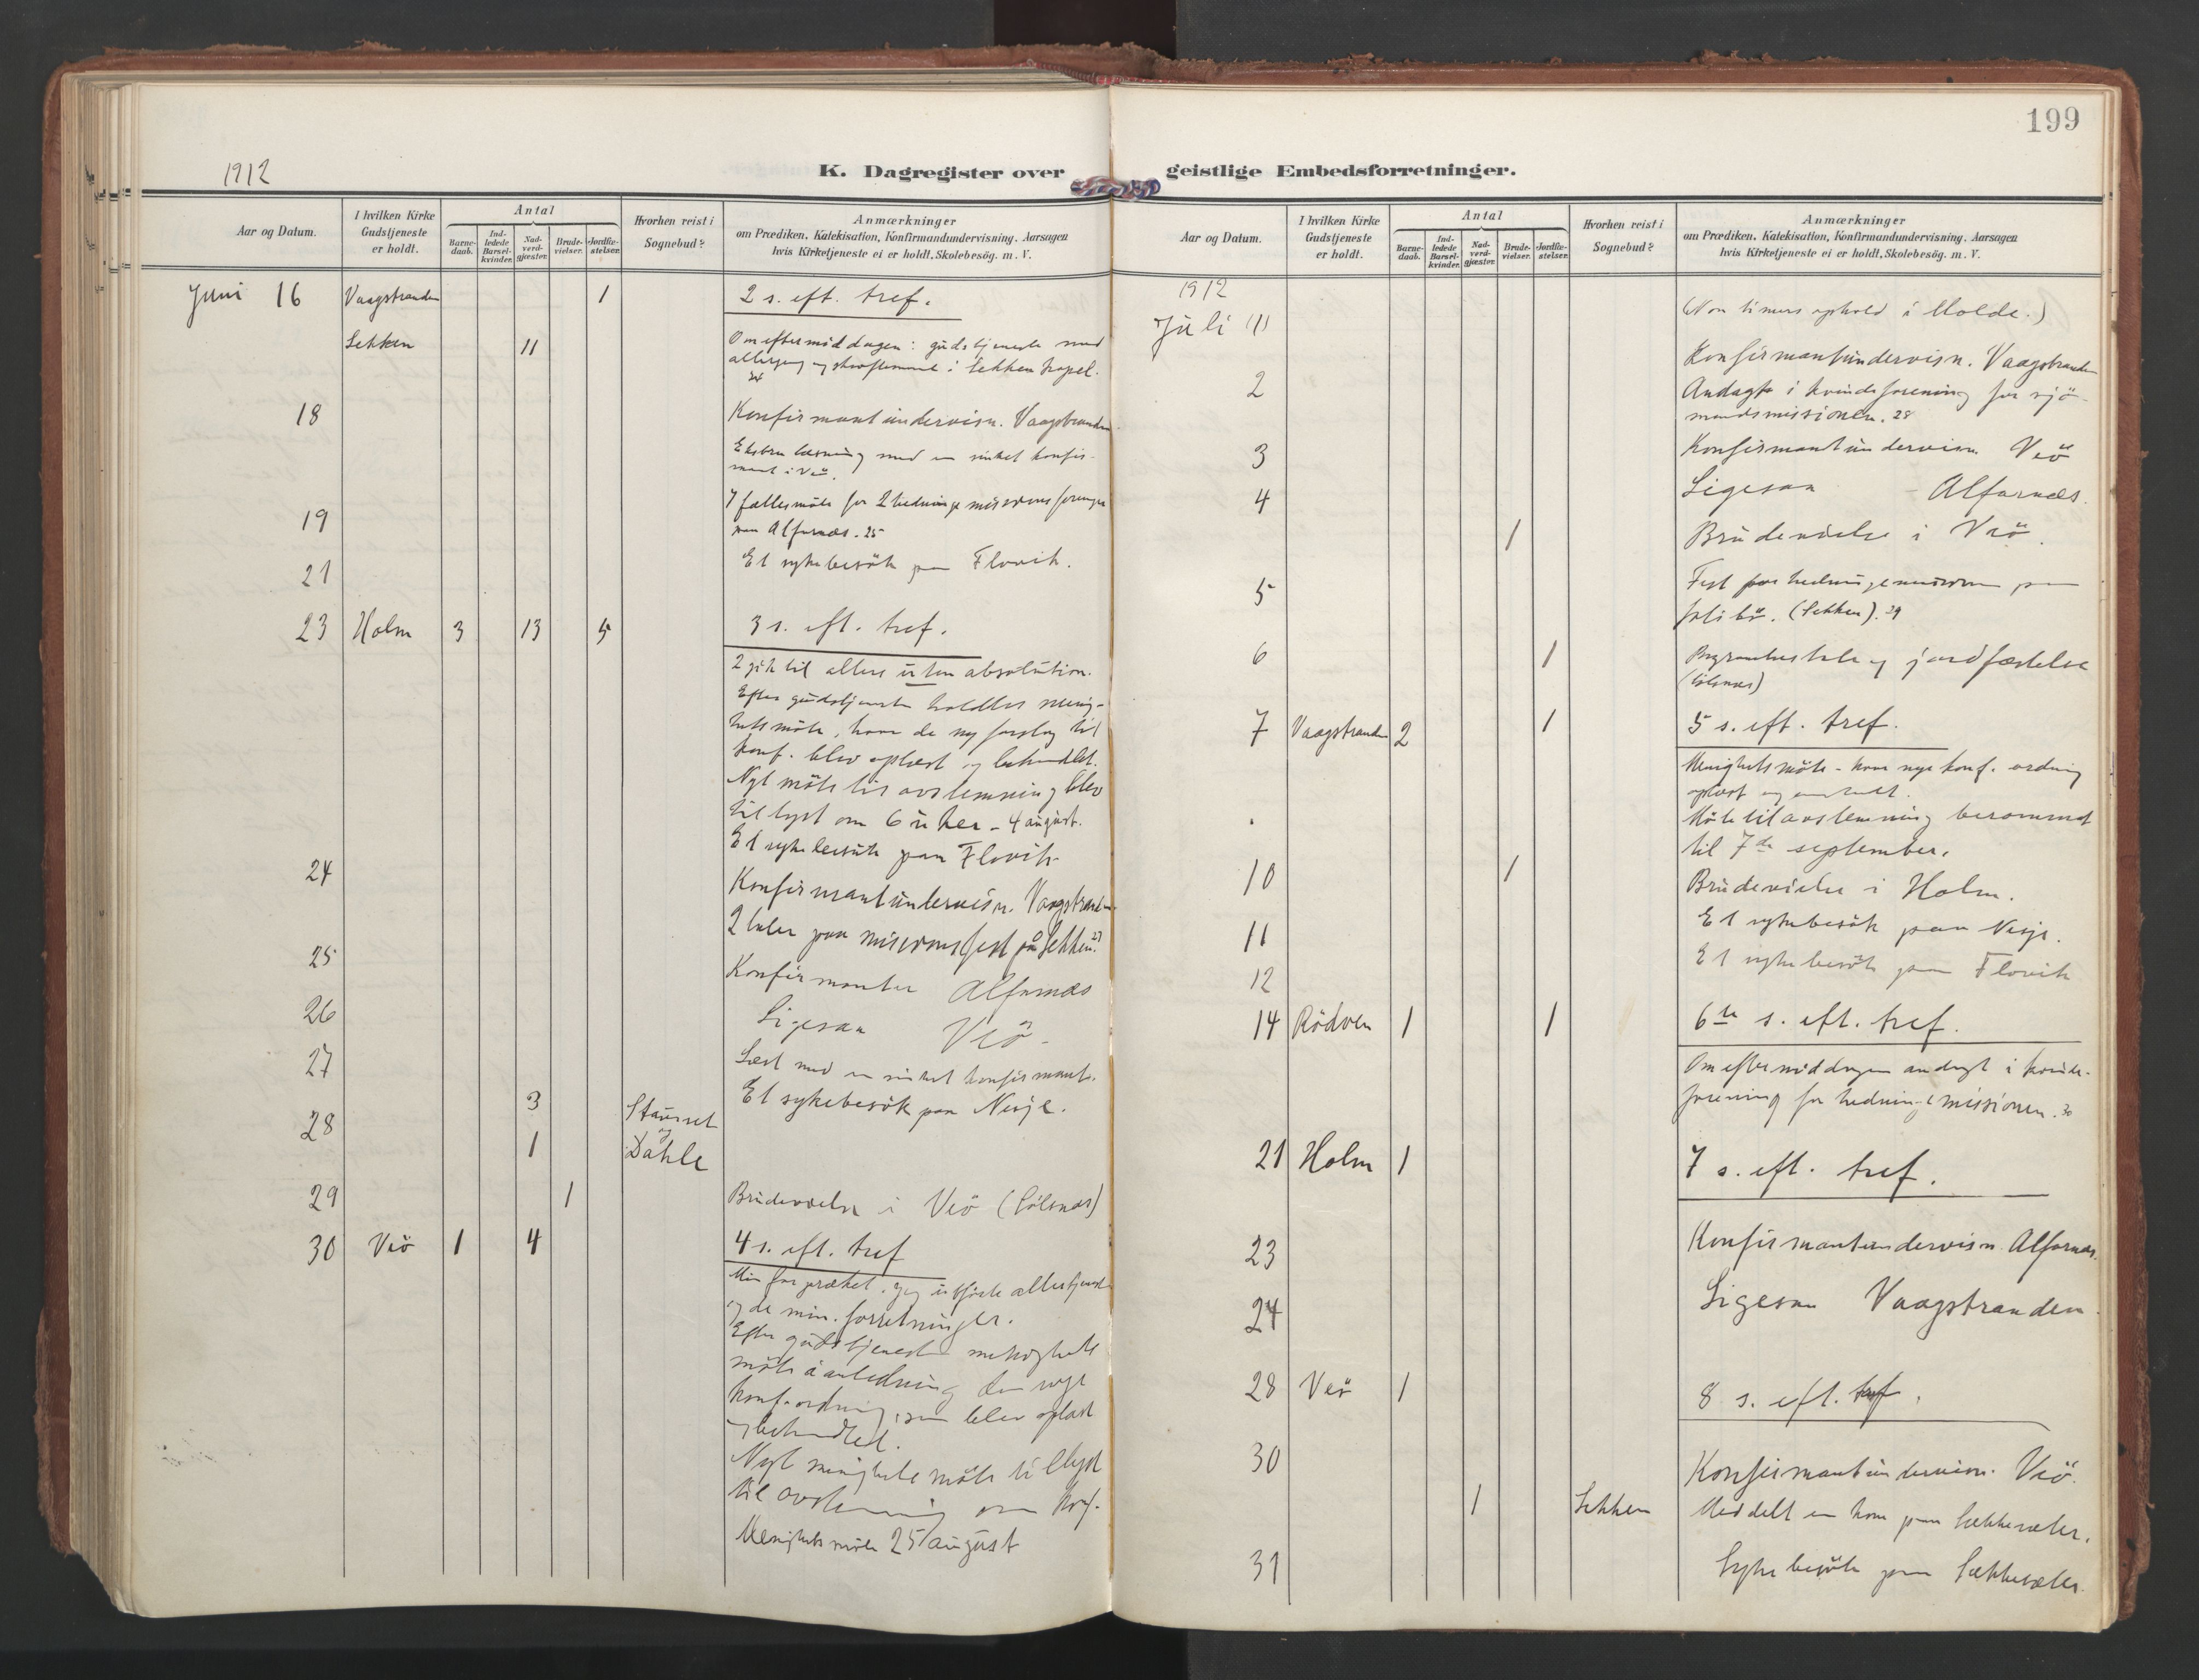 199
K. Dagregister over geistlige Embedsforretninger.
1912
Aar og Datum.
I hvilken Kirke Gudstjeneste er holdt.
Antal
Barne-daab.
Ind-ledede Barsel-kvinder.
Nad-verd-gjæster.
Brude-vielser.
Jordfæ-stelser.
Hvorhen reist i Sognebud?
Anmærkninger
om Prædiken, Katekisation, Konfirmandundervisning. Aarsagen
hvis Kirketjeneste ei er holdt, Skolebesög. m. V.
Juni 16 Vaagstranden 1 2 s. eft. tref.
Sekken 11 Om eftermiddagen: gudstjeneste med
altergang og skriftemaal i Sekken kapel.
24
18 Konfirmantundervisn. Vaagstranden
Ekstra læsning med en sinket konfir-
mant i Veö.
19 I fællesmöte for 2 hedningemissionsforeninger
paa Alfarnæs. 25
21 Et sykebesök paa Flovik.
23 Holm 3 13 5 3 s. eft. tref.
2 gik til alters uten absolution.
Efter gudstjenesten holdtes menig-
hetsmöte, hvor de ny forslag til
konf. blev oplæst og behandlet.
Nyt möte til avstemning blev
tillyst om 6 uker - 4 august.
Et sykebesök paa Flovik
24 Konfirmantundervisn. Vaagstranden
2 taler paa missionsfest på Sekken. 27
25 Konfirmanter Alfarnæs
26 Ligesaa Veö
27 Læst med en sinket konfirmant.
Et sykebesök paa Nesje.
28 3 Stavset
og
1 Dahle
29 1 Brudevielse i Veö (Sölsnæs)
30 Veö 1 4 4 s. eft. tref
Min far præket. Jeg utförte altertjenesten
og de min. forretninger.
Efter gudstjenesten menighets
möte i anledning den nye
konf.ordning, som blev oplæst
og behandlet.
Nyt menighets möte tillyst
til avstemning om konf.
Menighetsmöte 25 august
Aar og Datum.
I hvilken Kirke Gudstjeneste er holdt.
Antal
Barne-daab.
Ind-ledede Barsel-kvinder.
Nad-verd-gjæster.
Brude-vielser.
Jordfæ-stelser.
Hvorhen reist i Sognebud?
Anmærkninger
om Prædiken, Katekisation, Konfirmandundervisning. Aarsagen
hvis Kirketjeneste ei er holdt, Skolebesög. m. V.
1912
Juli (1) timers ophold i Molde.)
2 Konfirmantundervisn. Vaagstranden
Andagt i kvindeforening for sjö-
mandsmissionen. 28
3 Konfirmantundervisn. Veö
4 Ligesaa - Alfarnæs.
1 Brudevielse i Veö.
5 Fest for hedningemissionen paa
(Sekken). 29
6 1 og jordfæstelse
(Sölsnæs)
7 Vaagstranden 2 1 5 s. eft. tref.
Menighetsmöte - hvor nye konf. ordning
oplæst og
Möte til avstemning berammet
til 7de september.
10 1 Brudevielse i Holm.
11 Et sykebesök paa Nesje.
12 Et sykebesök paa Flovik
14 Rödven 1 1 6te s. eft. tref.
Om eftermiddagen andagt i kvinde-
forening for hedningemissionen. 30
21 Holm 1 7 s. eft. tref.
23 Konfirmantundervisn. Alfarnæs.
24 Ligesaa Vaagstranden.
28 Veö 1 8 s. eft. tref.
30 Konfirmantundervisn. Veö.
1 Sekken Meddelt en kone paa Sekkesæter.
31 Sykebesök paa Sekkesæter.